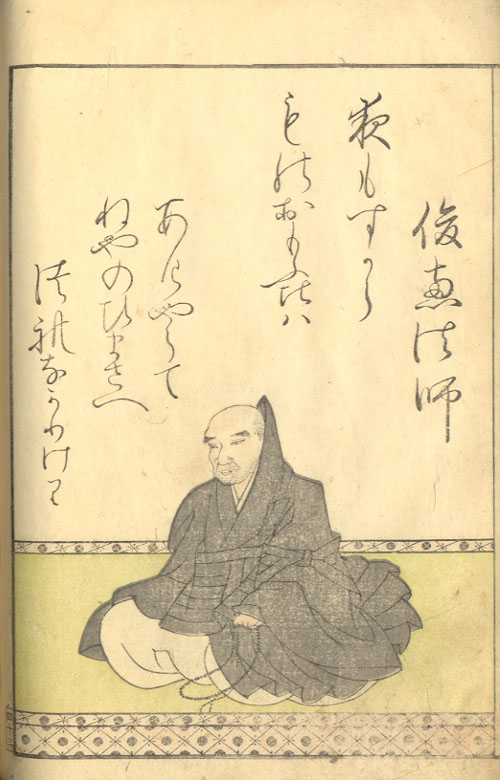 俊恵法師
夜もすから
ものおもふ比は
あけやらて
ねやのひまさへ
つれなかりけり